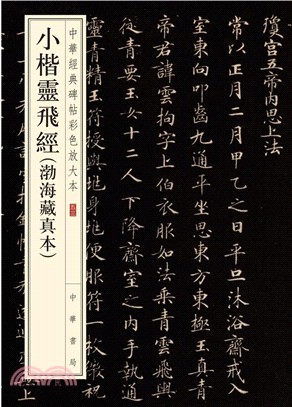 瓊宮五帝内思上法
常以正月二月甲乙之日平旦沐浴齋戒入
室東向叩齒九通平坐思東方東極玉真青
帝君諱雲拘字上伯衣服如法乘青雲輿
從青要玉女十二人下降齋室之内手執通
靈青精玉符授與兆身兆便服符一枚微祝
中華經典碑帖彩色放大本
小楷靈飛經(渤海藏真本)
中華書局